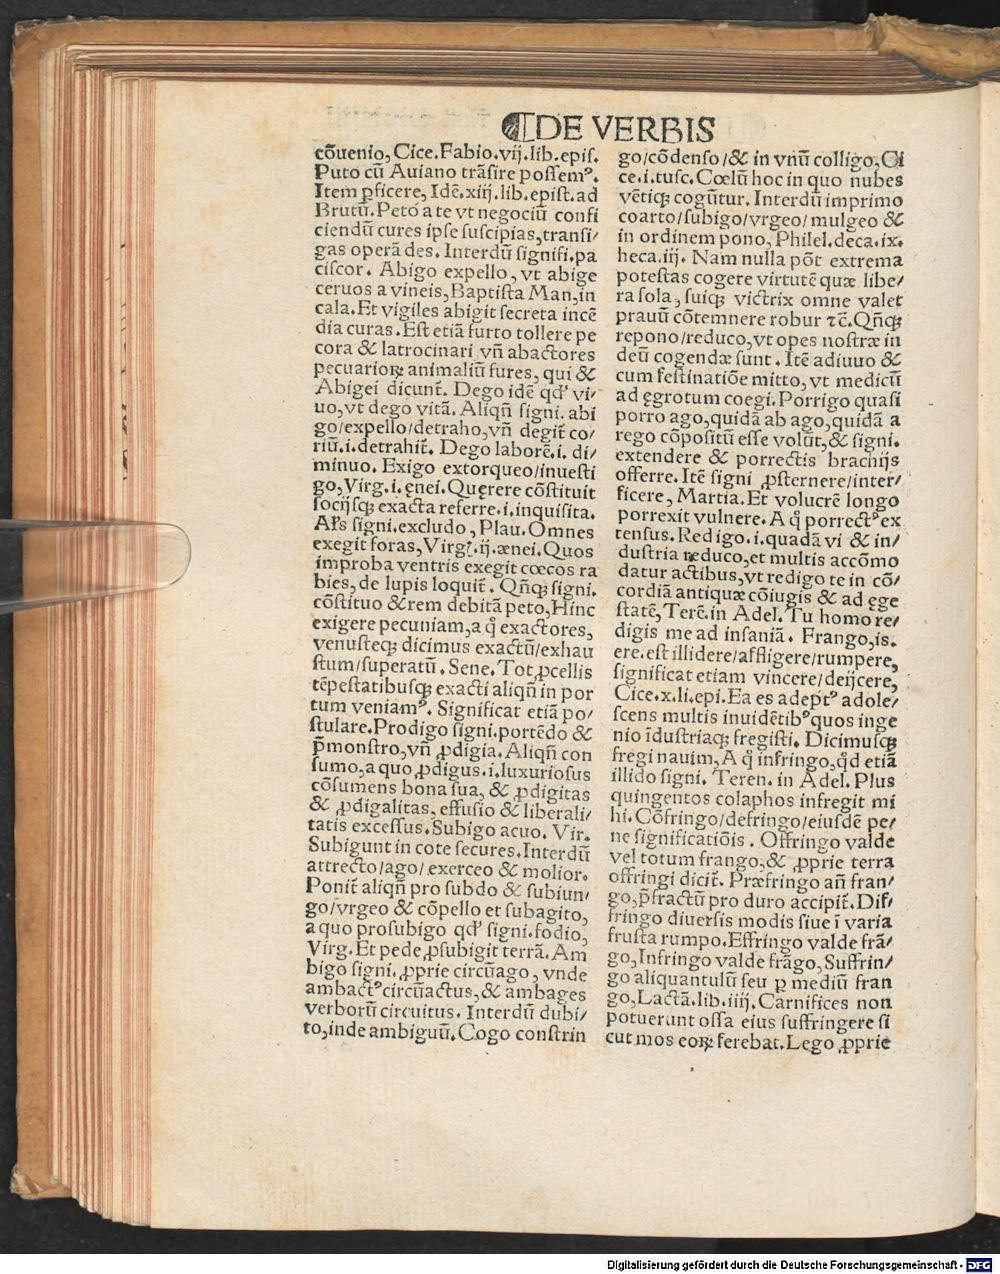 ¶ DE VERBIS
cōuenio, Cice. Fabio. vij. lib. epiſ.
Puto cū Auiano trāſire poſſemꝰ.
Item ꝑficere, Idē. xiij. lib. epiſt. ad
Brutū. Peto a te vt negociū confi
ciendū cures ipſe ſuſcipias, tranſi/
gas operā des. Interdū ſignifi. pa
ciſcor. Abigo expello, vt abige
ceruos a vineis, Baptiſta Man, in
cala. Et vigiles abigit ſecreta incē
dia curas. Eſt etiā furto tollere pe
cora & latrocinari vñ abactores
pecuarioꝝ animaliū fures, qui &
Abigei dicunt̃. Dego idē qd' vi/
uo, vt dego vitā. Aliqñ ſigni. abi
go/expello/detraho, vñ degit̃ co/
riū. i. detrahit̃. Dego laborē. i. di/
minuo. Exigo extorqueo/inueſti
go, Virg. i. ęnei. Quęrere cōſtituit
ſocijſqꝫ exacta referre. i. inquiſita.
Al's ſigni. excludo, Plau. Omnes
exegit foras, Virgl. ij. ænei. Quos
improba ventris exegit cœcos ra
bies, de lupis loquit̃. Qñqꝫ ſigni.
cōſtituo & rem debitā peto, Hinc
exigere pecuniam, a q̊ exactores,
venuſteqꝫ dicimus exactū/exhau
ſtum/ſuperatū. Sene. Tot ꝓcellis
tēpeſtatibuſqꝫ exacti aliqñ in por
tum veniamꝰ. Significat etiā po/
ſtulare. Prodigo ſigni. portēdo &
p̄monſtro, vñ ꝓdigia. Aliqñ con
ſumo, a quo ꝓdigus. i. luxurioſus
cōſumens bona ſua, & ꝓdigitas
& ꝓdigalitas, effuſio & liberali/
tatis exceſſus. Subigo acuo. Vir.
Subigunt in cote ſecures. Interdū
attrecto/ago/exerceo & molior.
Ponit̃ aliqñ pro ſubdo & ſubiun/
go/vrgeo & cōpello et ſubagito,
a quo proſubigo qd' ſigni. fodio,
Virg. Et pede ꝓſubigit terrā. Am
bigo ſigni. ꝓprie circūago, vnde
ambactꝰ circūactus, & ambages
verborū circuitus. Interdū dubi/
to, inde ambiguū. Cogo conſtrin
go/cōdenſo/& in vnū colligo, Ci
ce. i. tuſc. Cœlū hoc in quo nubes
vētiqꝫ cogūtur. Interdū imprimo
coarto/ſubigo/vrgeo/mulgeo &
in ordinem pono, Philel. deca. ix.
heca. iij. Nam nulla pōt extrema
poteſtas cogere virtutē quæ libe/
ra ſola, ſuiqꝫ victrix omne valet
prauū cōtemnere robur ⁊c̄. Qñqꝫ
repono/reduco, vt opes noſtræ in
deū cogendæ ſunt. Itē adiuuo &
cum feſtinatiōe mitto, vt medicū
ad ęgrotum coegi. Porrigo quaſi
porro ago, quidā ab ago, quidā a
rego cōpoſitū eſſe volūt, & ſigni.
extendere & porrectis brachijs
offerre. Itē ſigni ꝓſternere/inter/
ficere, Martia. Et volucrē longo
porrexit vulnere. A q̊ porrectꝰ ex
tenſus. Redigo. i. quadā vi & in/
duſtria reduco, et multis accōmo
datur actibus, vt redigo te in cō/
cordiā antiquæ cōiugis & ad ęge
ſtatē, Terē. in Adel. Tu homo re/
digis me ad inſaniā. Frango, is.
ere. eſt illidere/affligere/rumpere,
ſignificat etiam vincere/deijcere,
Cice. x. li. epi. Ea es adeptꝰ adole/
ſcens multis inuidētibꝰ quos inge
nio īduſtriaqꝫ fregiſti. Dicimuſqꝫ
fregi nauim, A q̊ infringo, qd̊ etiā
illido ſigni. Teren. in Adel. Plus
quingentos colaphos infregit mi
hi. Cōfringo/defringo/eiuſdē pe/
ne ſignificatiōis. Offringo valde
vel totum frango, & ꝓprie terra
offringi dicit̃. Præfringo añ fran/
go, p̄fractū pro duro accipit̃. Dif/
fringo diuerſis modis ſiue ī varia
fruſta rumpo. Effringo valde frā/
go, Infringo valde frāgo, Suffrin/
go aliquantulū ſeu ꝑ mediū fran
go, Lactā. lib. iiij. Carnifices non
potuerunt oſſa eius ſuffringere ſi
cut mos eoꝝ ferebat. Lego ꝓprie
Digitalisierung gefördert durch die Deutsche Forschungsgemeinschaft - DFG